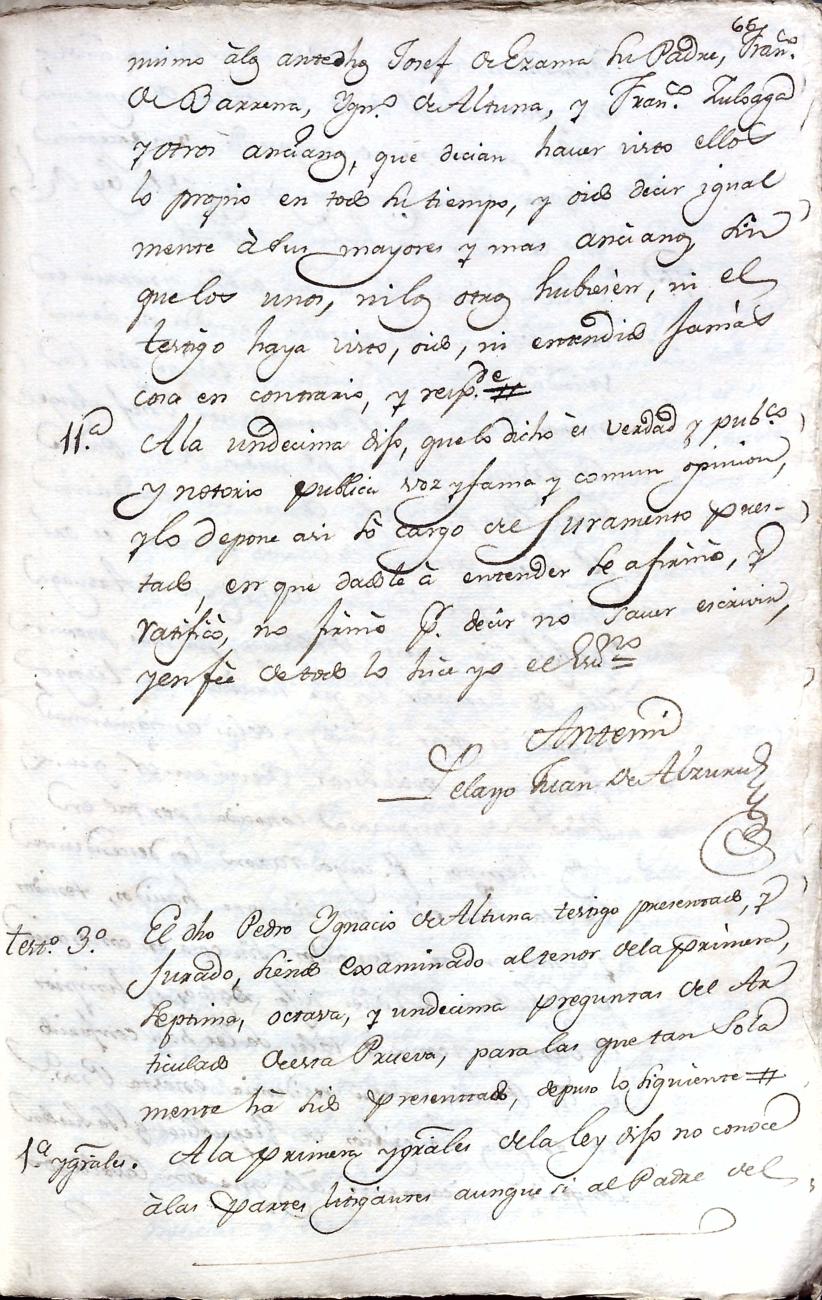 66
mismo àlos antedhos Josef de Ezama su Padre, Fran.co
de Barrena, Ygn.o de Altuna, y Fran.co Zuloaga
y otros ancianos, que decian haver visto ellos
lo propio en todo su tiempo, y oido decir igual
mente à sus mayores y mas ancianos sin
que los unos, ni los otros hubiesen, ni el
testigo haya visto, oido, ni entendido jamàs
cosa en contrario, y resp.de #
11.a A la undecima dijo, que lo dicho ès verdad y pub.co
y notorio publica voz y fama y comun opinion,
y lo depone asi sò cargo del Juramento pres-
tado, en que dadole à entender se afirmò, y
ratificò, no firmò p.r decir no saver escrivir,
y en feè de todo lo hice yo el Esc.no =
Antemi
Pelayo Juan de Alzuru
test.o 3.o El dho Pedro Ygnacio de Altuna testigo presentado, y
Jurado, siendo examinado al tenor de la primera,
septima, octava, y undecima preguntas del Ar
ticulado de esta Prueva, para las que tan sola
mente hà sido presentado, depuso lo siguiente #
1.a y grãles. A la primera y grãles de la ley dijo no conoce
à las partes litigantes aunque si al Padre del